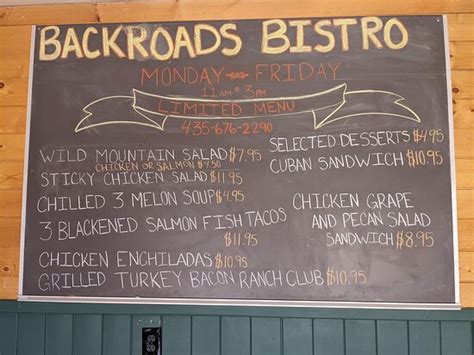 BACKROADS BISTRO
MONDAY FRIDAY
11AM 3PM
LIMITED MENU
435-676-2290
WILD MOUNTAIN SALAD $7.95
CHICKEN OR SALMON $4.50
STICKY CHICKEN SALAD $11.95
CHILLED 3 MELON SOUP $4.95
3 BLACKENED SALMON FISH TACOS
$11.95
CHICKEN ENCHILADAS $10.95
GRILLED TURKEY BACON RANCH CLUB $10.95
SELECTED DESSERTS $4.95
CUBAN SANDWICH $10.95
CHICKEN GRAPE
AND PECAN SALAD
SANDWICH $8.95